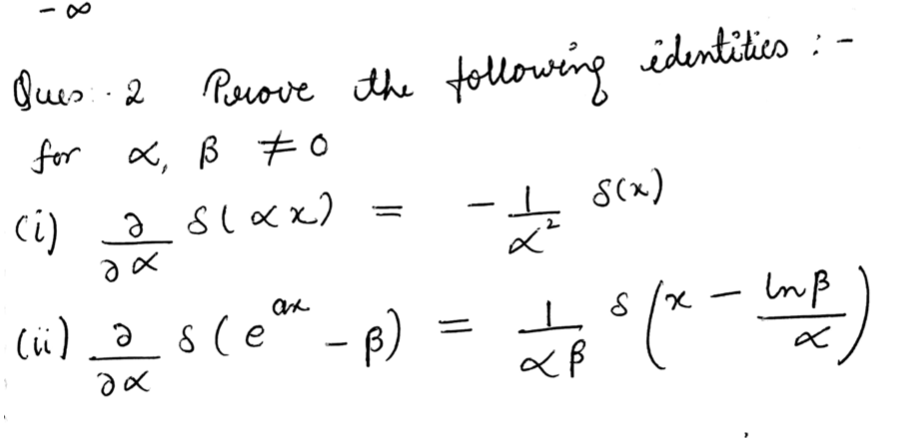 - ∞
Ques:- 2 Prove the following identities :-
for α, β ≠ 0
(i) ∂/∂α δ(αx) = - 1/α² δ(x)
(ii) ∂/∂α δ(e^{ax} - β) = 1/αβ δ(x - ln β/α)